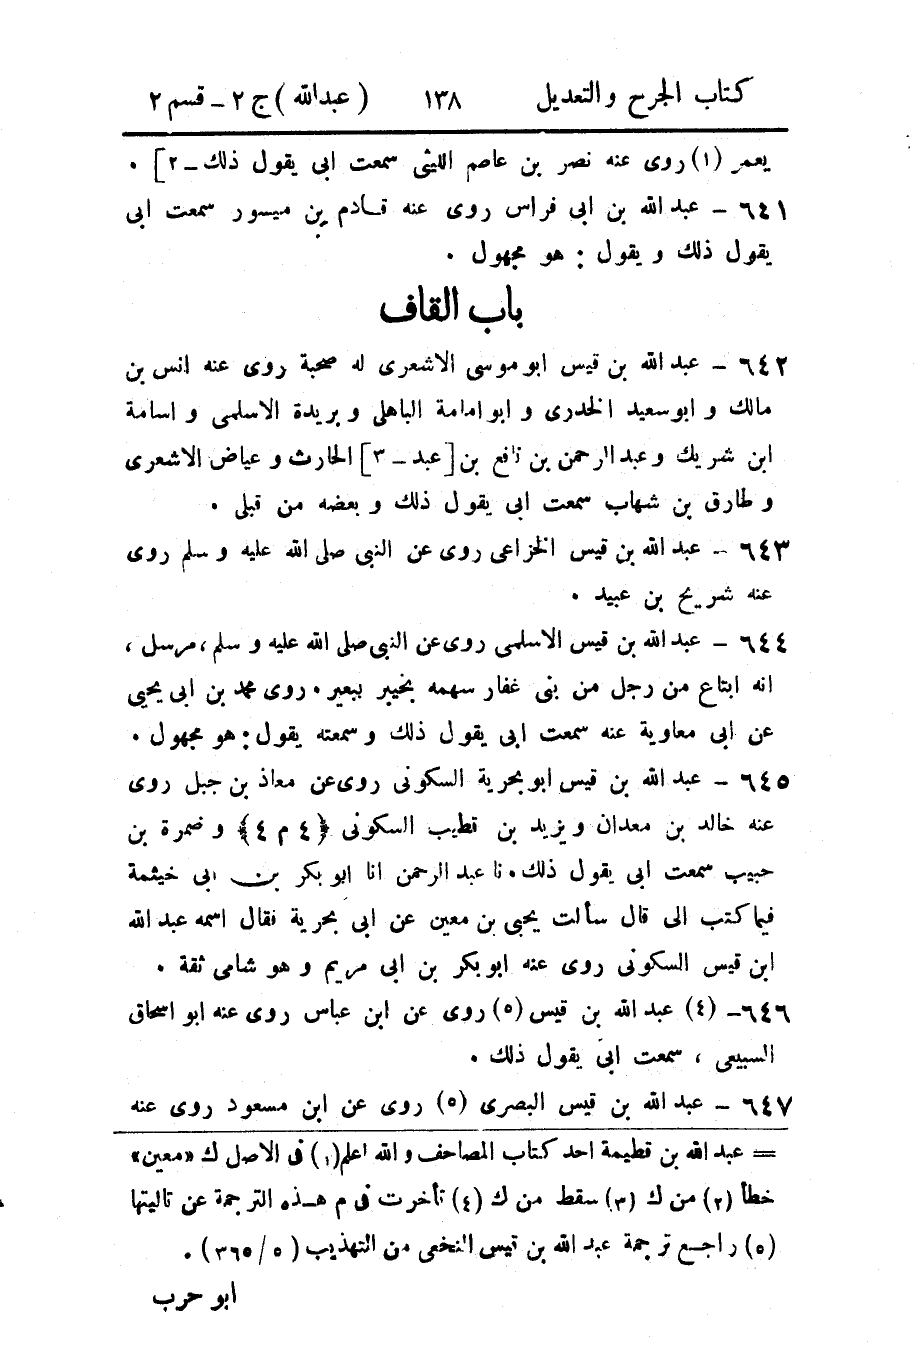 كتاب الجرح والتعديل ١٣٨ (عبدالله) ج ٢ - قسم ٢
يعمر (١) روى عنه نصر بن عاصم الليثى سمعت ابى يقول ذلك - ٢] .
٦٤١ - عبد الله بن ابى فراس روى عنه قادم بن ميسور سمعت ابى
يقول ذلك و يقول : هو مجهول .
باب القاف
٦٤٢ - عبد الله بن قيس ابو موسى الاشعرى له صحبة روى عنه انس بن
مالك و ابو سعيد الخدرى و ابو امامة الباهلى و بريدة الاسلمى و اسامة
ابن شريك و عبد الرحمن بن نافع بن [عبد - ٣] الحارث و عياض الاشعرى
و طارق بن شهاب سمعت ابى يقول ذلك و بعضه من قبلى .
٦٤٣ - عبد الله بن قيس الخزاعى روى عن النبى صلى الله عليه و سلم روى
عنه شريح بن عبيد .
٦٤٤ - عبد الله بن قيس الاسلمى روى عن النبى صلى الله عليه و سلم ، مرسل ،
انه ابتاع من رجل من بنى غفار سهمه بخيبر ببعير . روى محمد بن ابى يحيى
عن ابى معاوية عنه سمعت ابى يقول ذلك و سمعته يقول : هو مجهول .
٦٤٥ - عبد الله بن قيس ابو بحرية السكونى روى عن معاذ بن جبل روى
عنه خالد بن معدان و يزيد بن قطيب السكونى ﴿٤ م ٤﴾ و ضمرة بن
حبيب سمعت ابى يقول ذلك . نا عبد الرحمن انا ابو بكر بن ابى خيثمة
فيما كتب الى قال سألت يحيى بن معين عن ابى بحرية فقال اسمه عبد الله
ابن قيس السكونى روى عنه ابو بكر بن ابى مريم و هو شامى ثقة .
٦٤٦ - (٤) عبد الله بن قيس (٥) روى عن ابن عباس روى عنه ابو اسحاق
السبيعى ، سمعت ابى يقول ذلك .
٦٤٧ - عبد الله بن قيس البصرى (٥) روى عن ابن مسعود روى عنه
= عبد الله بن قطيمة احد كتاب المصاحف و الله اعلم (١) فى الاصل ك «معين»
خطأ (٢) من ك (٣) سقط من ك (٤) تأخرت فى م هذه الترجمة عن تاليتها
(٥) راجع ترجمة عبد الله بن قيس النخعى من التهذيب (٥ / ٣٦٥) .
ابو حرب